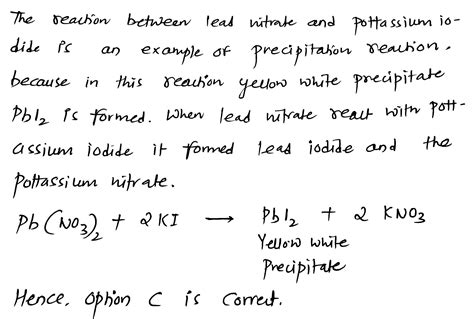 The reaction between lead nitrate and pottassium io-
dide is an example of precipitation reaction.
because in this reaction yellow white precipitate
PbI₂ is formed. When lead nitrate react with pott-
assium iodide it formed lead iodide and the
Pottassium nitrate.
Pb(NO₃)₂ + 2KI → PbI₂ + 2 KNO₃
Yellow white
Precipitate
Hence, option C is correct.